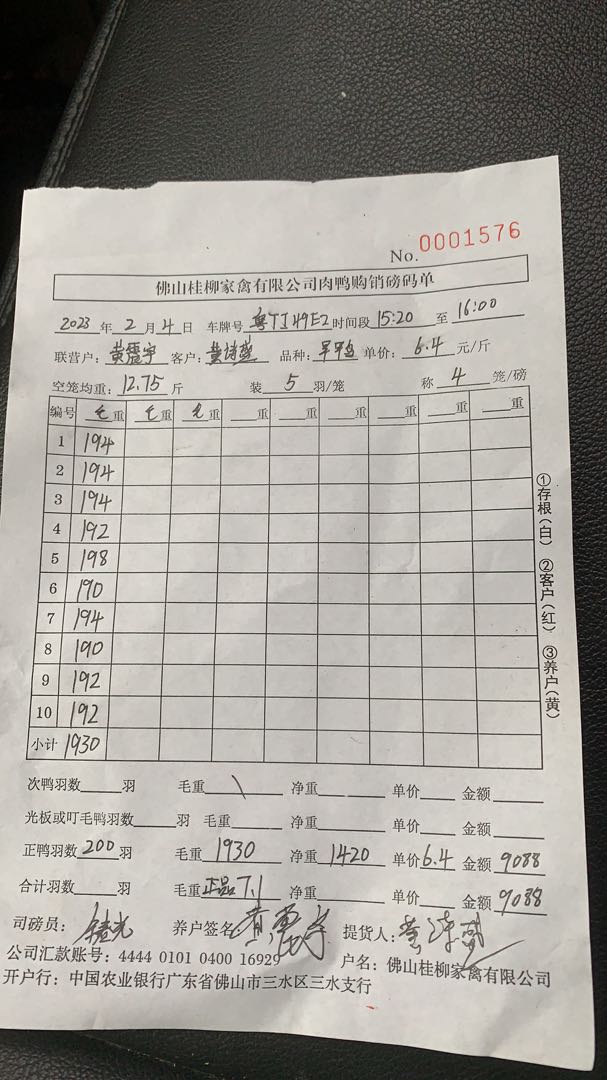 No. 0001576
佛山桂柳家禽有限公司肉鸭购销磅码单
2023 年 2 月 4 日 车牌号 粤TJ49E2 时间段 15:20 至 16:00
联营户: 黄震宇 客户: 黄诗燕 品种: 单价: 6.4 元/斤
空笼均重: 12.75 斤 装 5 羽/笼 称 4 笼/磅
编号 毛重 毛重 毛重 重 重 重 重 重 重
1 194
2 194
3 194
4 192
5 198
6 190
7 194
8 190
9 192
10 192
小计 1930
①存根(白) ②客户(红) ③养户(黄)
次鸭羽数 羽 毛重 \ 净重 单价 金额
光板或叮毛鸭羽数 羽 毛重 净重 单价 金额
正鸭羽数 200 羽 毛重 1930 净重 1420 单价 6.4 金额 9088
合计羽数 羽 毛重 正品7.1 净重 单价 金额 9088
司磅员: 养户签名 黄震宇 提货人:
公司汇款账号: 4444 0101 0400 16929 户名: 佛山桂柳家禽有限公司
开户行: 中国农业银行广东省佛山市三水区三水支行